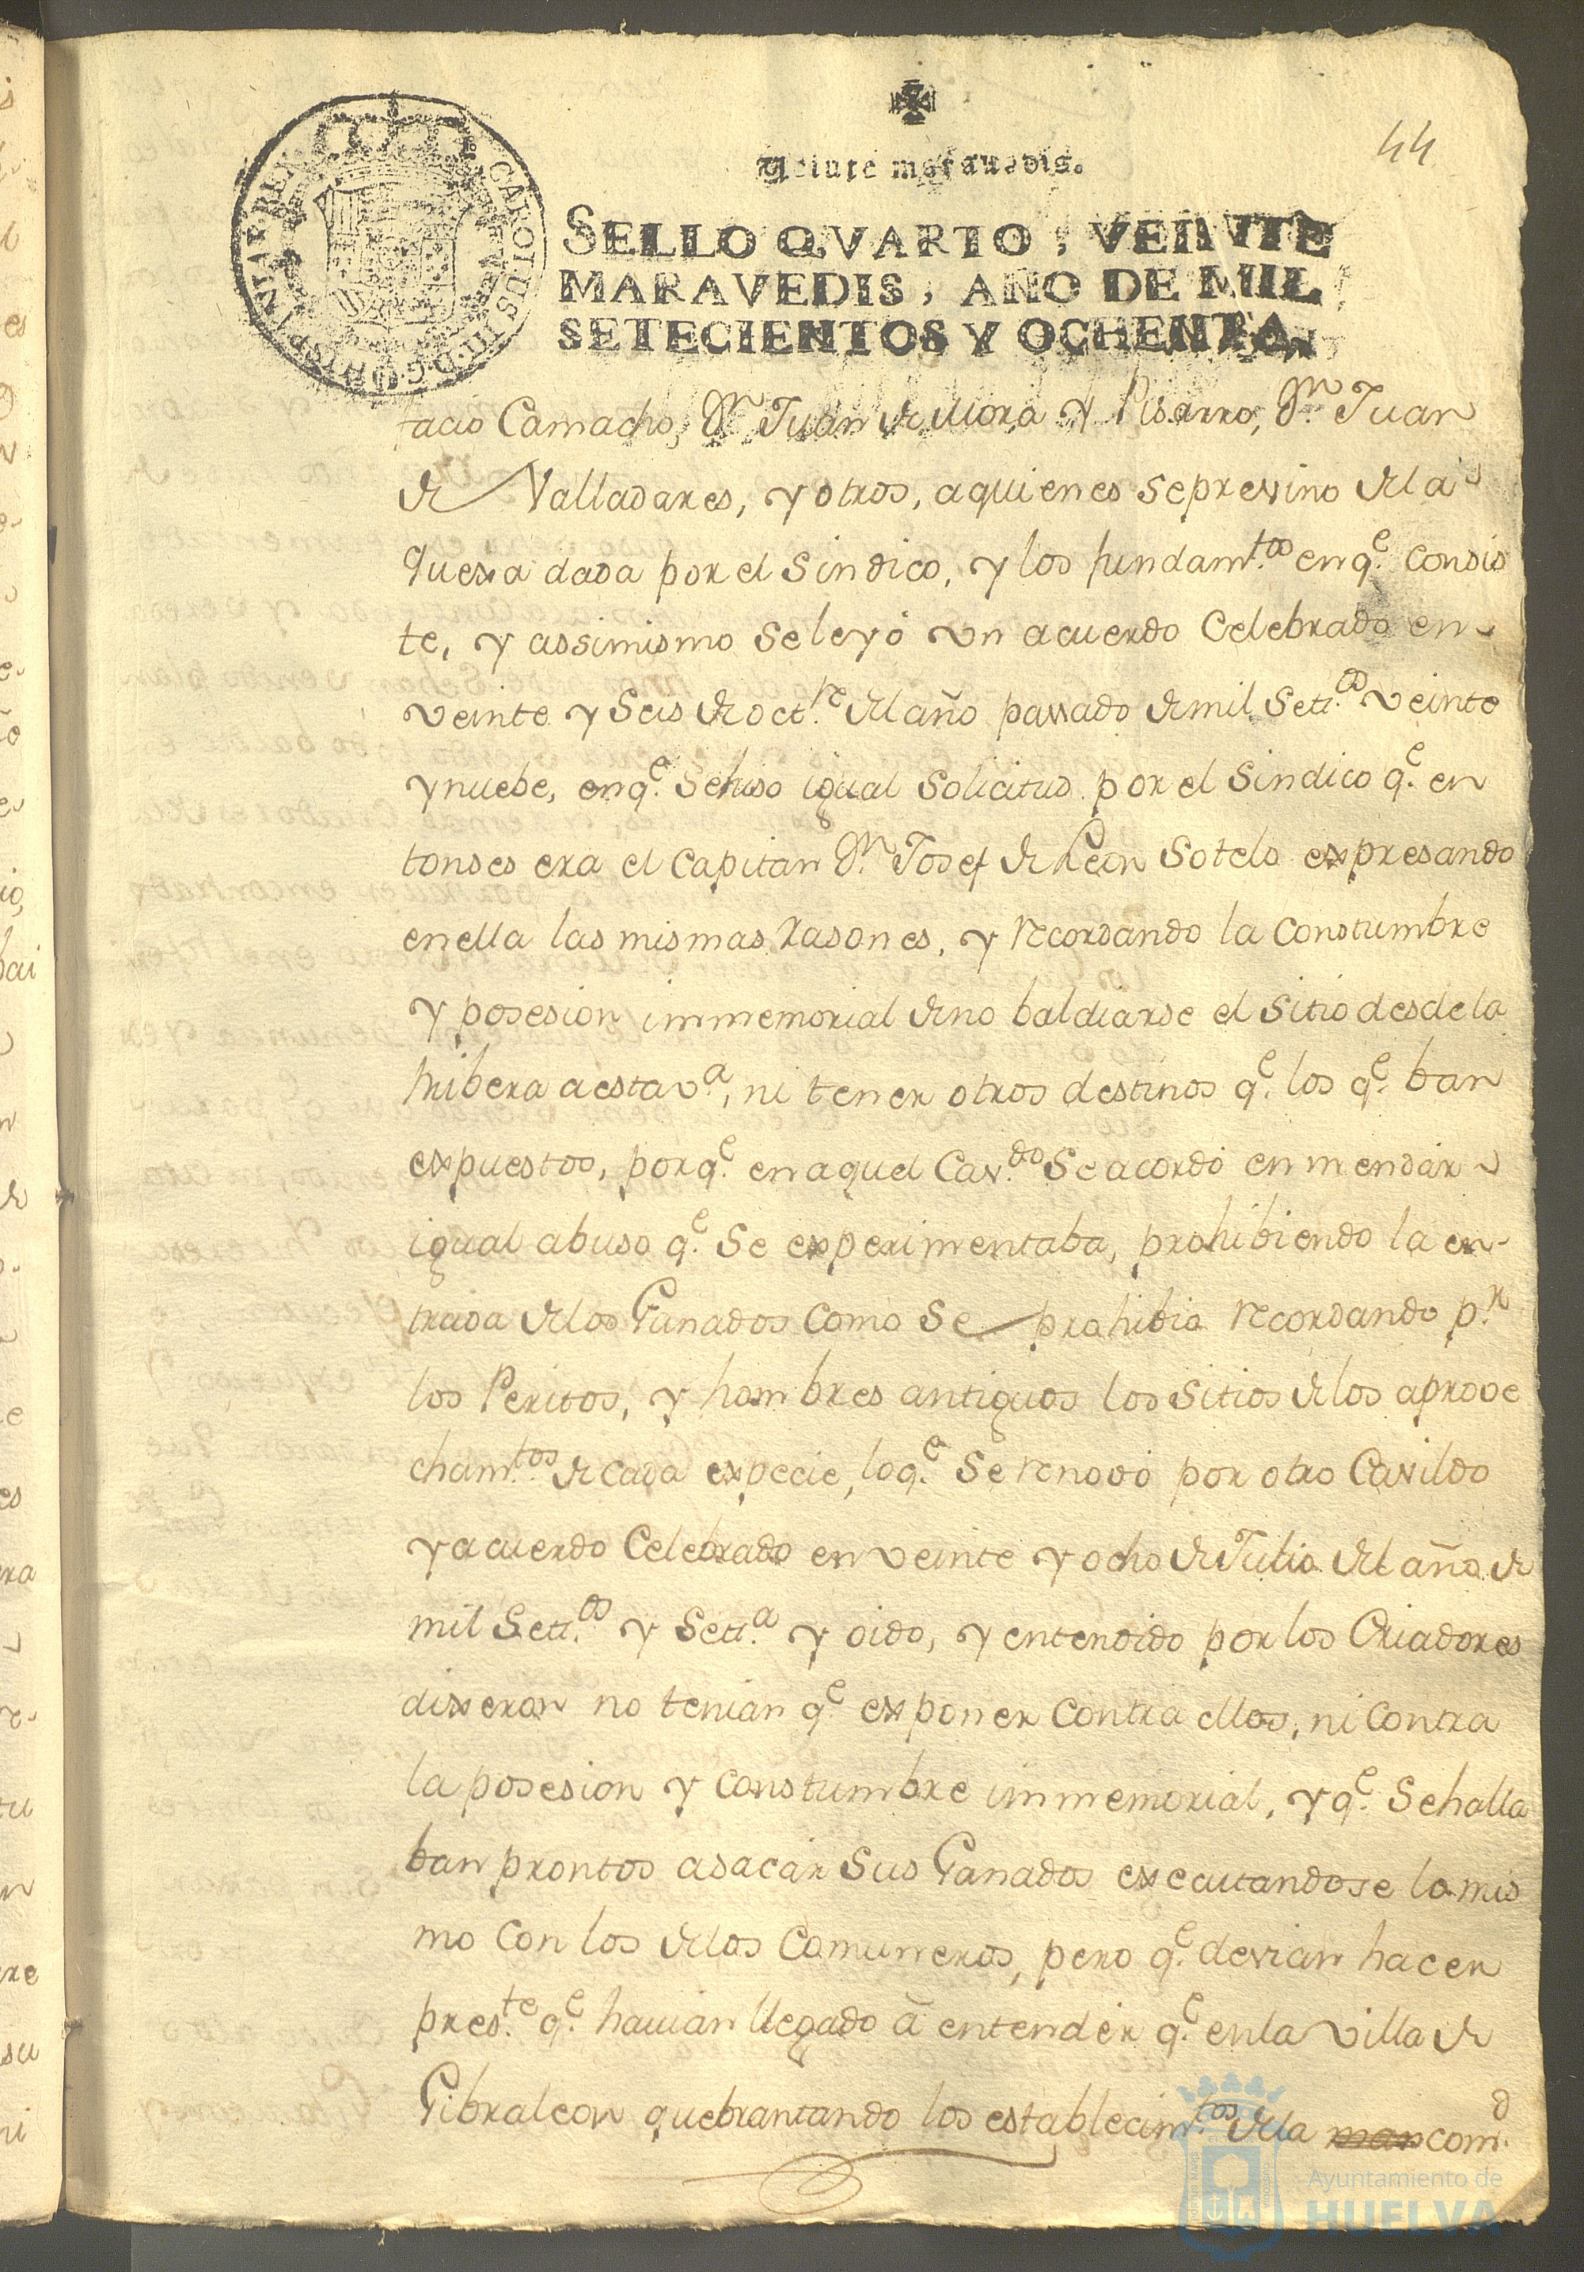 44
Veinte maravedis.
SELLO QVARTO, VEINTE
MARAVEDIS, AÑO DE MIL
SETECIENTOS Y OCHENTA.
CAROLUS III D G HISPANIAR REX
tacio Camacho, Dn. Juan de Mora y Pisarro, Dn. Juan
de Valladares, y otros, aquienes seprevino dela
quexa dada por el Sindico, y los fundamtos. enqe. consis
te, y assimismo seleyó vn acuerdo Celebrado en
veinte y Seis de octre. del año passado de mil Setts. veinte
ynuebe, enqe. sehiso igual solicitud por el Sindico qe. en
tonses era el Capitan Dn. Josef de Leon Sotelo expresando
enella las mismas Rasones, y recordando la constumbre
y posesion immemorial de no baldiarse el sitio desde la
Ribera aesta va., ni tener otros destinos qe. los qe. ban
expuestos, porqe. en aquel Cavdo. Se acordó enmendar
igual abuso qe. Se experimentaba, prohibiendo la en-
trada delos Ganados como Se prohibia recordando pr.
los Peritos, y hombres antiguos los sitios delos aprove
chamtos. de cada expecie, loqe. Se renovó por otro Cavildo
yacuerdo Celebrado en veinte y ocho de Julio del año de
mil Setts. y Setta. y oido, y entendido por los Criadores
dixeron no tenian qe. exponer contra ellos, ni contra
la posesion y constumbre immemorial, yqe. Sehalla
ban prontos asacar sus Ganados executandose lo mis
mo con los delos Comuneros, pero qe. devian hacer
preste. qe. havian llegado á entender qe. enla villa de
Gibraleon quebrantando los establecimtos. dela man comd.
Ayuntamiento de
HUELVA